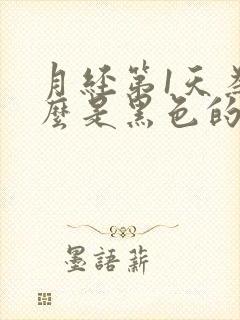 月经第1天为
麼是黑色的
墨語薪